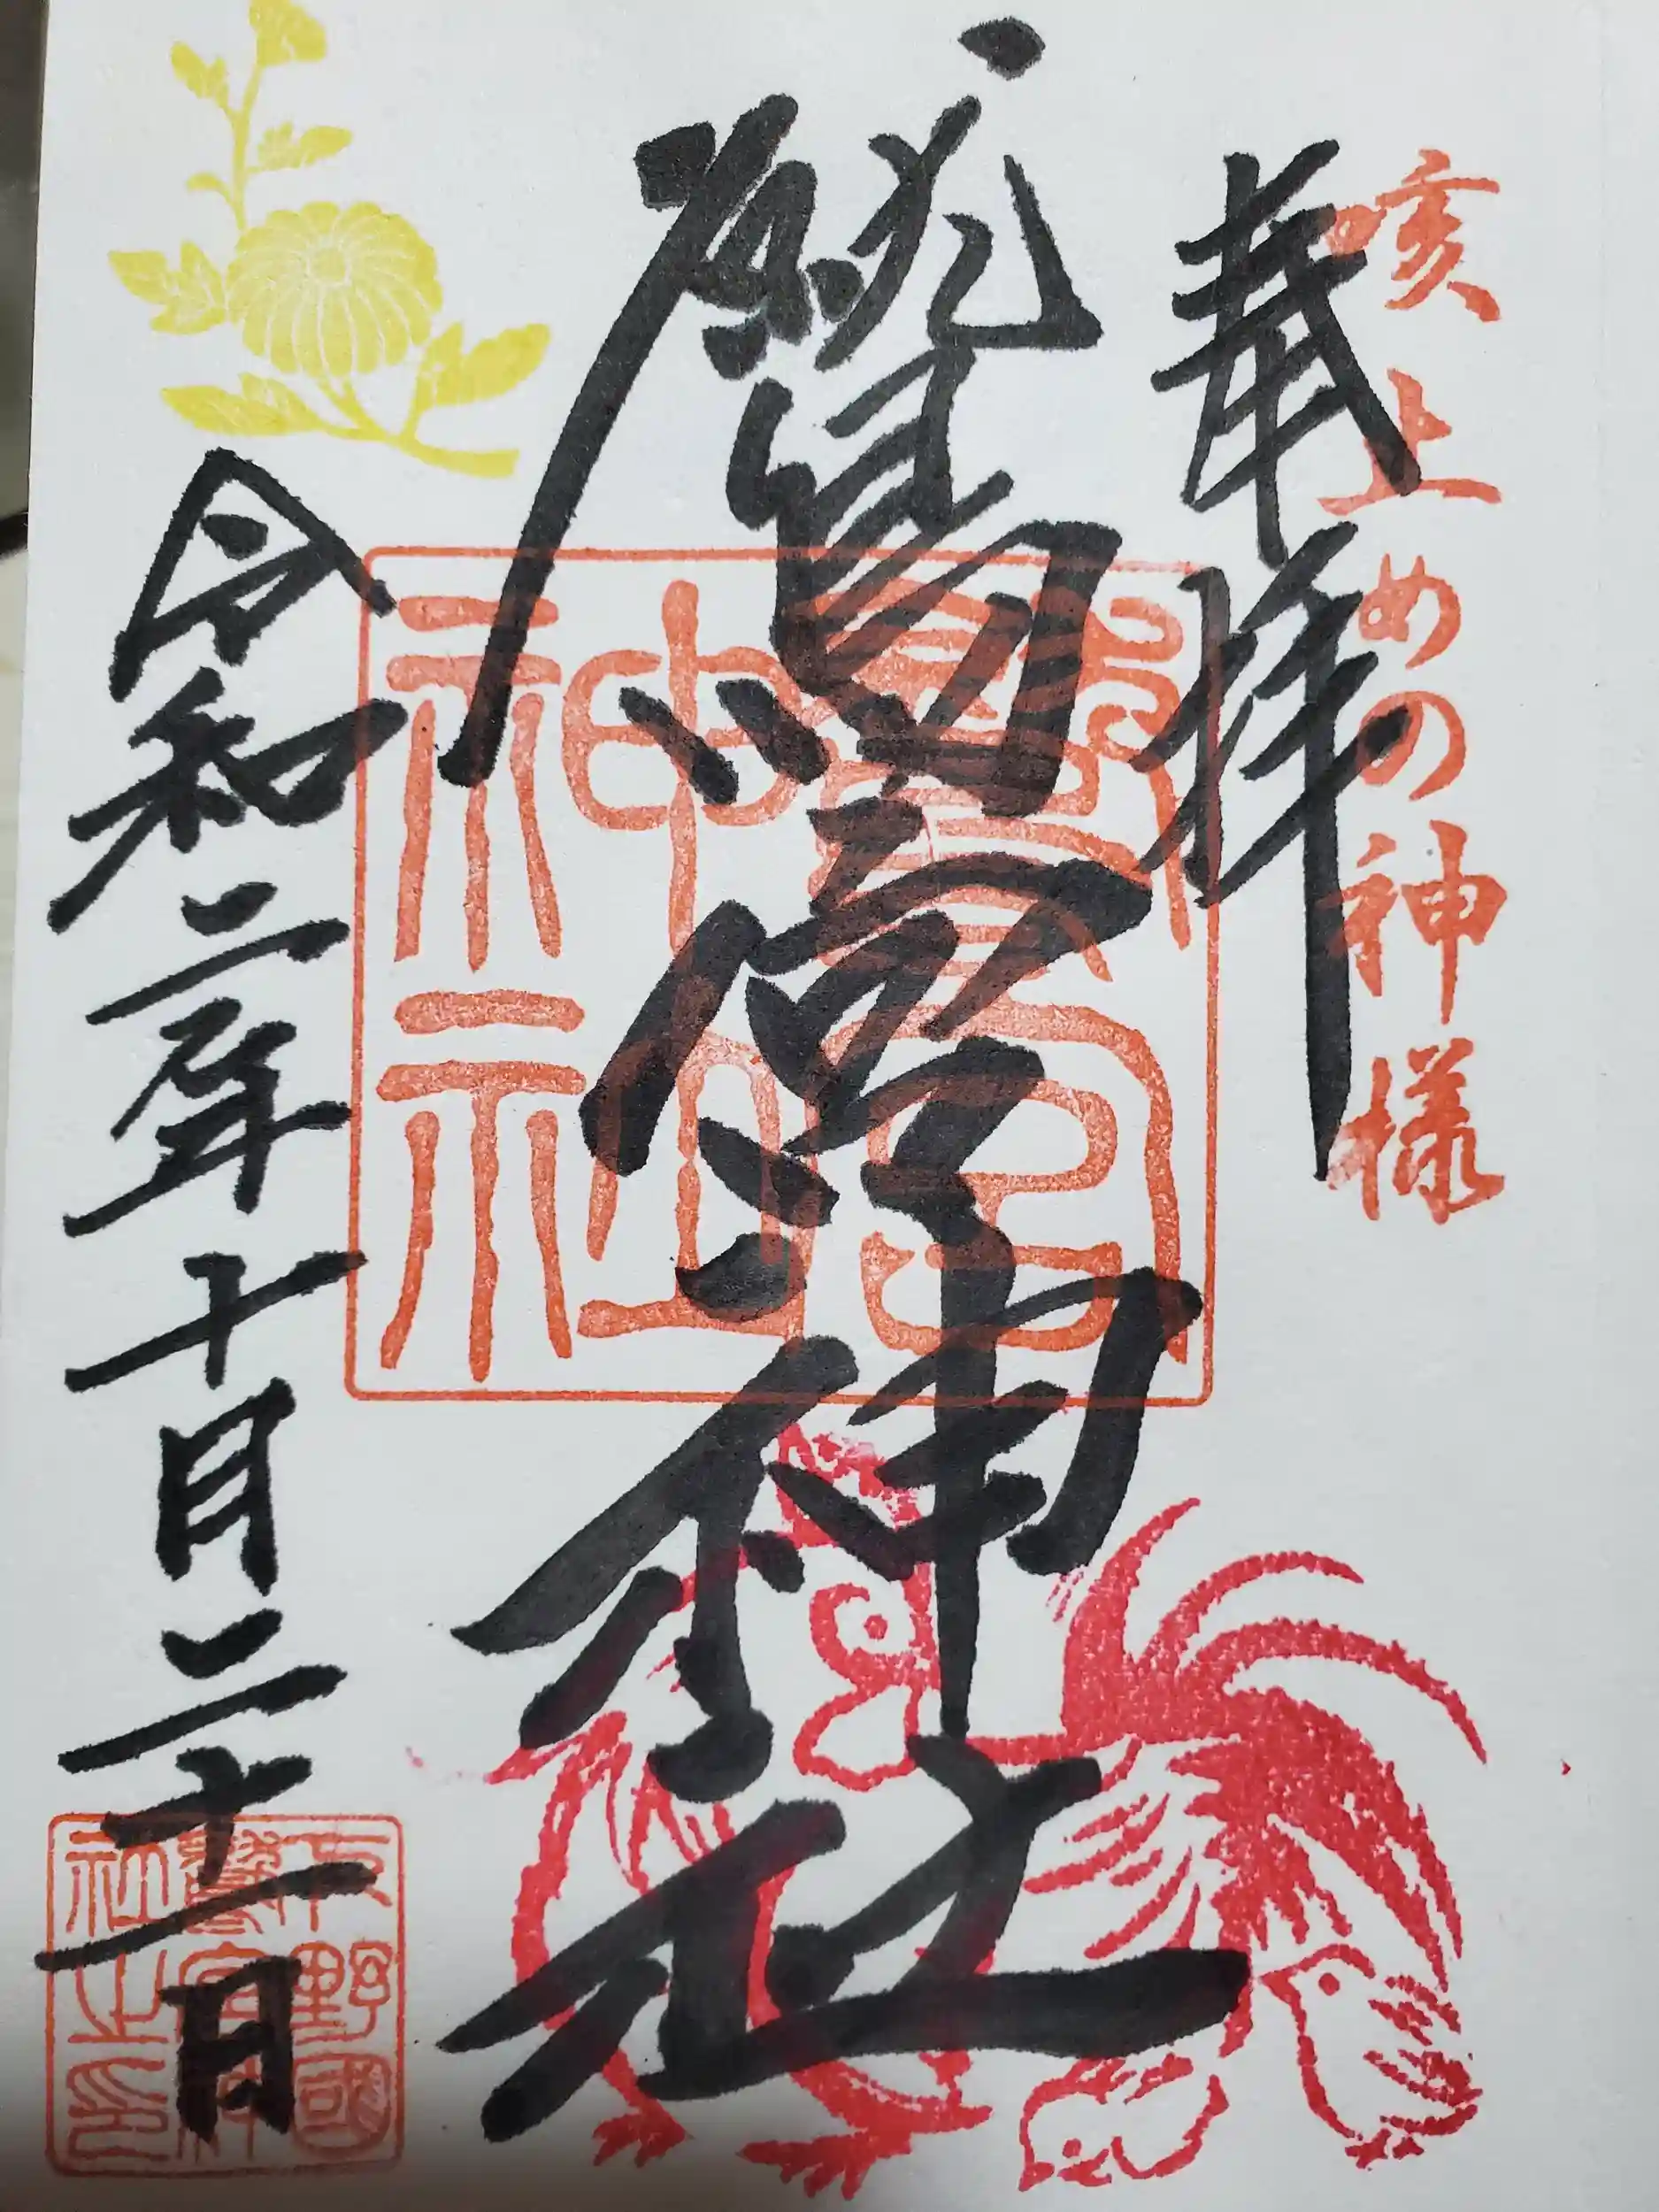 咳止めの神様
奉拝
鷲宮神社
鷲宮
神社
令和二年十月二十一日
下野國
鷲宮神
社之印